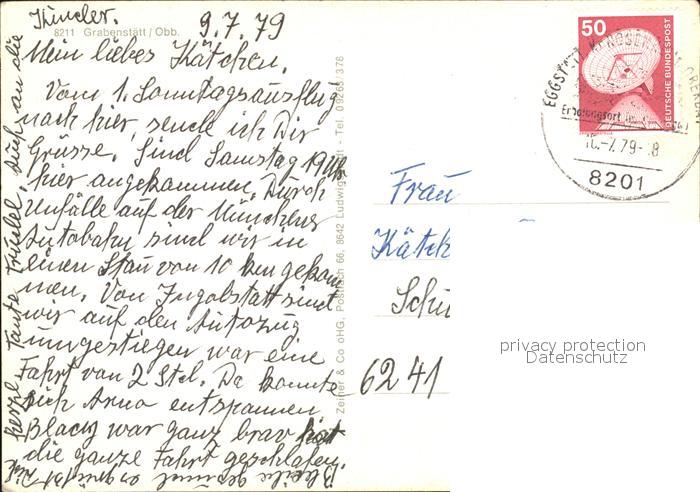 8211 Grabenstätt / Obb.
9.7.79
Mein liebes Kätchen.
Vom 1. Sonntagsausflug
nach hier, sende ich Dir
Grüsse. Sind Samstag 19 Uhr
hier angekommen. Durch
Unfälle auf der Münchner
Autobahn sind wir in
einen Stau von 10 km gekom
men. Von Ingolstatt sind
wir auf den Autozug
umgestiegen war eine
Fahrt von 2 Std. Da konnte
sich Arno entspannen
Blacky war ganz brav hat
die ganze Fahrt geschlafen.
Bleibe gesund
herzl. Tante Trudel, auch an die
Kinder.
Zeiner & Co oHG, Postfach 66, 8642 Ludwig t - Tel. 09263/378
50
DEUTSCHE BUNDESPOST
EGGSTÄTT
Erholungsort
10.-7.79-18
8201
Frau
Kätch
Schu
6241
privacy protection
Datenschutz